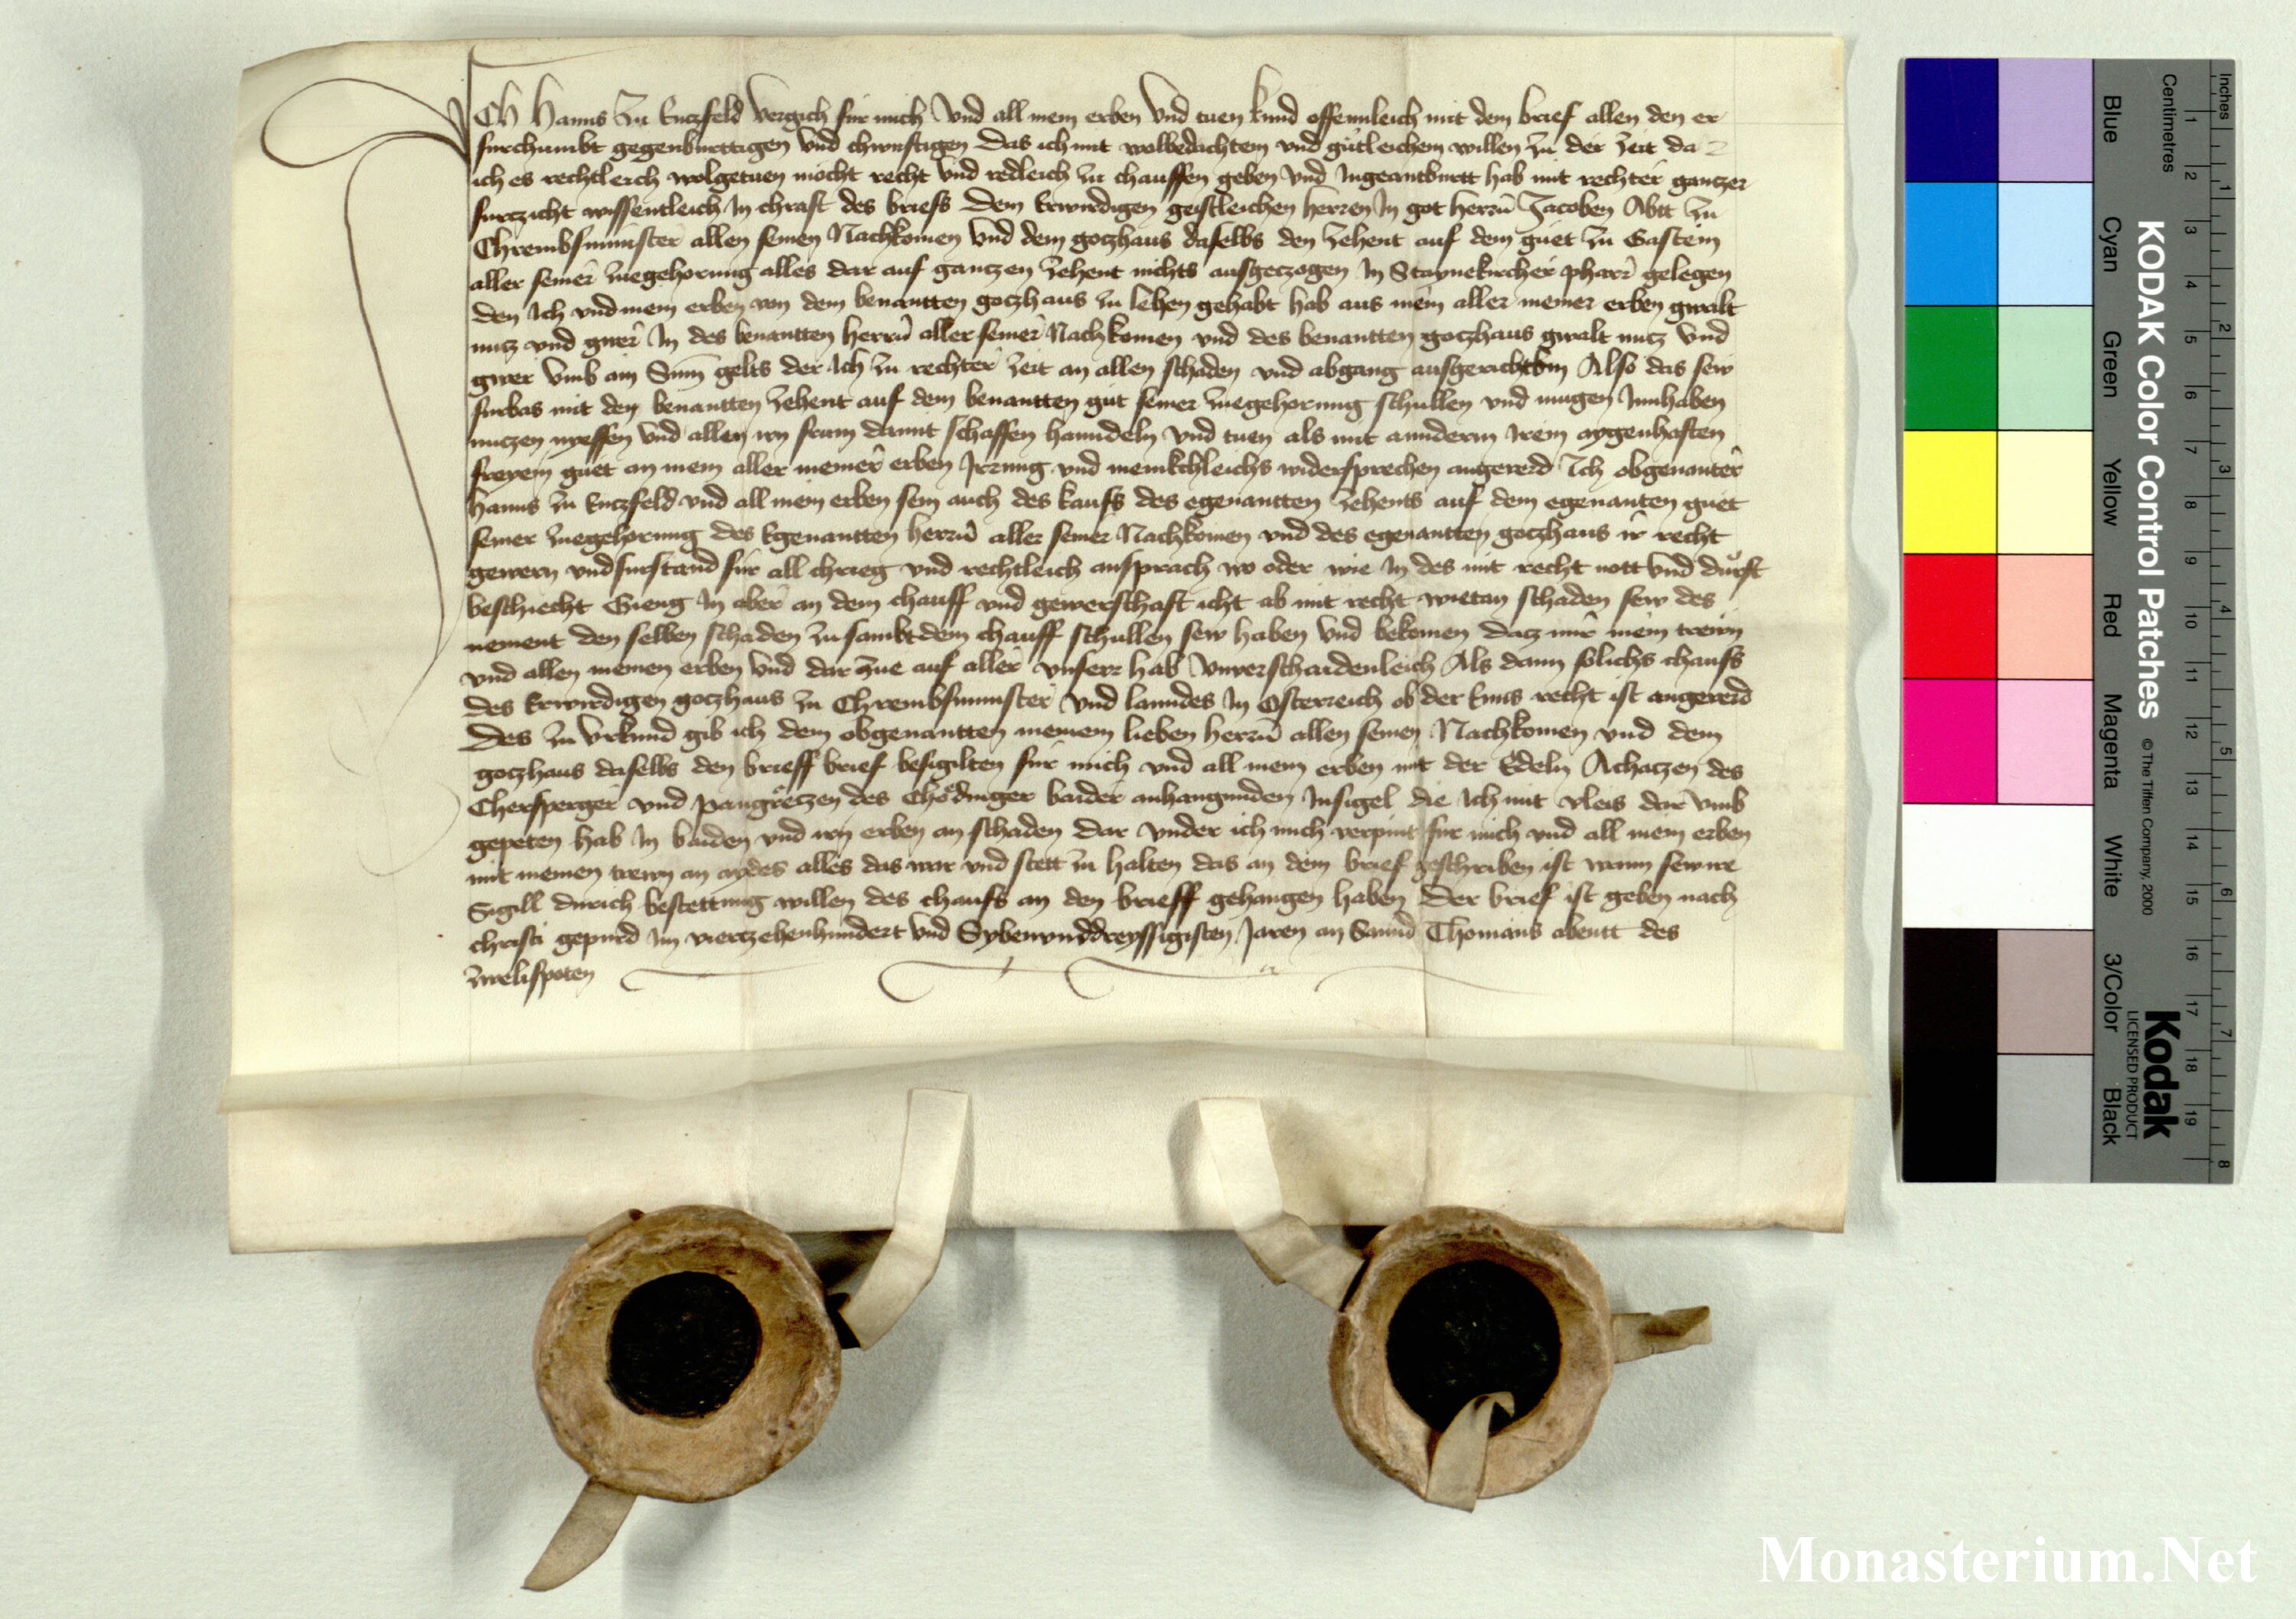 ICh Hanns zu Enczfeld vergich fur mich vnd all mein erben vnd tuen kund offennleich mit dem brief allen den er
furchumbt gegenburttigen vnd chunftigen Das ich mit wolbedachtem vnd gutleichem willen zu der zeit da
ich es rechtleich wolgetuen mocht recht vnd redleich zu chauffen geben vnd Ingeantburtt hab mit rechter gantzer
furczicht wissentleich In chraft des briefs Dem Erwirdigen geistleichen herren In got herrn Jacoben Abtt zu
Chrembsmunster allen seinen Nachkomen vnd dem goczhaus daselbs den zehent auf dem guet zu Gastein
aller seiner zuegehorung alles dar auf gantzen zehent nichts ausgeczogen In Staynekircher pharr gelegen
den Ich vnd mein erben von dem benantten goczhaus zu lehen gehabt hab aus mein aller meiner erben gwalt
nutz vnd gwer In des benantten herrn aller seiner Nachkomen vnd des benantten goczhaus gwalt nucz vnd
gwer vmb ain Sum gelts der Ich zu rechter zeit an allen schaden vnd abgang ausgericht bin Also das sew
furbas mit den benantten zehent auf dem benantten gut seiner zuegehorung schullen vnd mugen Innhaben
nutzen nyessen vnd allen irn frum damit schaffen hanndeln vnd tuen als mit annderm Irem aygenhaften
freyem guet an mein aller meiner erben Irrung vnd menikchleichs widersprechen angeverd Ich obgenanter
hanns zu Enczfeld vnd all mein erben sein auch des kaufs des egenantten zehents auf dem egenanten guet
seiner zuegehorung des Egenantten herrn aller seiner Nachkomen vnd des egenantten goczhaus ir recht
gewern vnd furstand fur all chrieg vnd rechtleich ansprach wo oder wie In des mit recht nott vnd durft
beschiecht Gieng In aber an dem chauff vnd gewerschaft icht ab mit recht wietan schaden sew des
nement den selben schaden zu sambt dem chauff schullen sew haben vnd bekomen dacz mir mein trewn
vnd allen meinen erben vnd dar zue auf aller vnserr hab vnverschaidenleich Als dann solichs chaufs
des Erwirdigen goczhaus zu Chrembsmunster vnd lanndes In Osterreich ob der Enns recht ist angeverd
Des zu vrkund gib ich dem obgenantten meinem lieben herrn allen seinen Nachkomen vnd dem
goczhaus daselbs den brieff brief besigilten fur mich vnd all mein erben mit der Edeln Achaczen des
Chersperger vnd Pangreczen des Chödinger baider anhangunden Insigel die Ich mit vleis dar vmb
gepeten hab In baiden vnd irn erben an schaden Dar vnder ich mich verpint fur mich vnd all mein erben
mit meinen trewn an aydes alles das war vnd stett zu halten das an dem brief geschriben ist wann sew ire
Sigill durich bestettung willen des chaufs an den brieff gehangen haben Der brief ist geben nach
christi gepurd Im viertzehenhundert vnd Sybenunddreyssigisten Jaren an Sannd Thomans abentt des
zwelifpoten
Inches
Centimetres
KODAK Color Control Patches
© The Tiffen Company, 2000
Kodak
LICENSED PRODUCT
Blue Cyan Green Yellow Red Magenta White 3/Color Black
1 2 3 4 5 6 7 8 9 10 11 12 13 14 15 16 17 18 19
1 2 3 4 5 6 7 8
Monasterium.Net